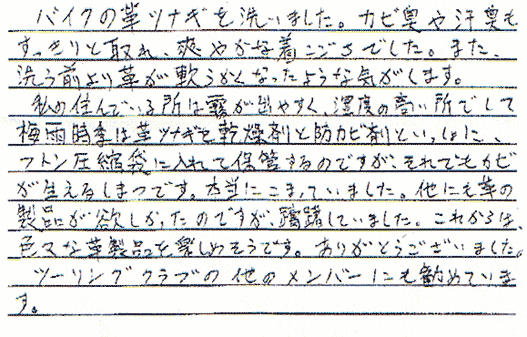 バイクの革ツナギを洗いました。カビ臭や汗臭も
すっきりと取れ、爽やかな着ごこちでした。また、
洗う前より革が軟らかくなったような気がします。
私の住んでいる所は霧が出やすく、湿度の高い所でして
梅雨時季は革ツナギを乾燥剤と防カビ剤といっしょに、
フトン圧縮袋に入れて保管するのですが、それでもカビ
が生えるしまつです。本当にこまっていました。他にも革の
製品が欲しかったのですが、躊躇していました。これからは、
色々な革製品を楽しめそうです。ありがとうございました。
ツーリングクラブの他のメンバーにも勧めていま
す。